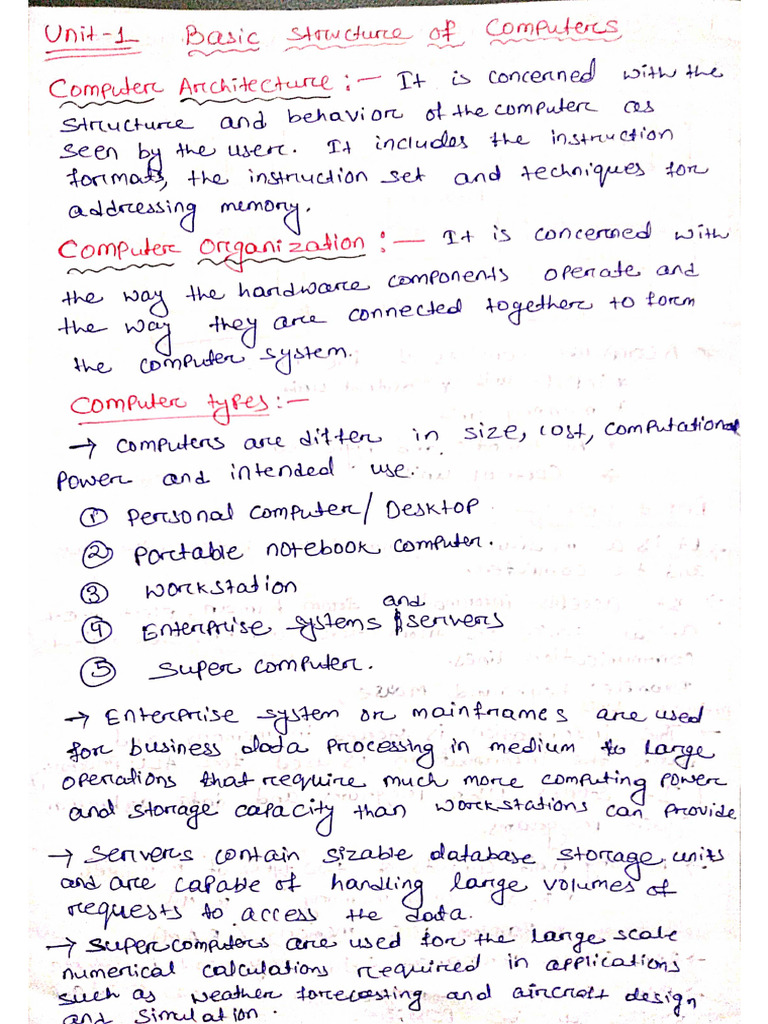 Unit-1 Basic Structure of Computers
Computer Architecture :- It is concerned with the
structure and behavior of the computer as
seen by the user. It includes the instruction
formats, the instruction set and techniques for
addressing memory.
Computer Organization :- It is concerned with
the way the hardware components operate and
the way they are connected together to form
the computer system.
Computer types :-
→ Computers are differ in size, cost, computational
power and intended use.
① Personal computer / Desktop
② Portable notebook computer.
③ Workstation
④ Enterprise systems and servers
⑤ Super computer.
→ Enterprise system or mainframes are used
for business data processing in medium to large
operations that require much more computing power
and storage capacity than workstations can provide
→ Servers contain sizable database storage units
and are capable of handling large volumes of
requests to access the data.
→ Supercomputers are used for the large scale
numerical calculations required in applications
such as weather forecasting and aircraft design
and simulation.